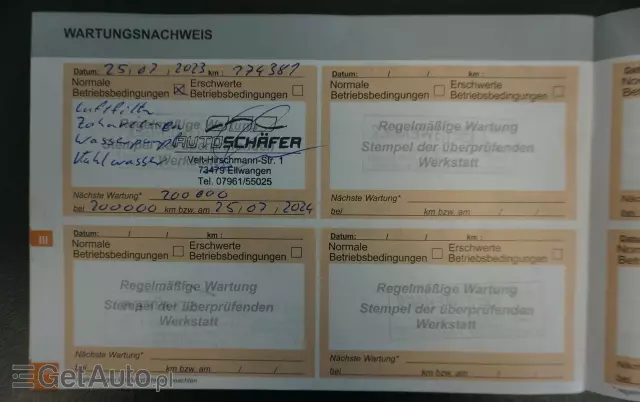 WARTUNGSNACHWEIS
Datum: 25, 07, 2023 km: 174381
Normale Betriebsbedingungen ☒ Erschwerte Betriebsbedingungen ☐
Luftfilter
Zahnriemen
Wasserpumpe
Kühlwasser
Regelmäßige Wartung
AUTOSCHÄFER
Veit-Hirschmann-Str. 1
73479 Ellwangen
Tel. 07961/55025
Nächste Wartung* 200 000
bei 200000 km bzw. am 25, 07, 2024
Datum: / / km :
Normale Betriebsbedingungen ☐ Erschwerte Betriebsbedingungen ☐
Regelmäßige Wartung
Stempel der überprüfenden
Werkstatt
Nächste Wartung*
bei km bzw. am / /
III
Datum: / / km :
Normale Betriebsbedingungen ☐ Erschwerte Betriebsbedingungen ☐
Regelmäßige Wartung
Stempel der überprüfenden
Werkstatt
Nächste Wartung*
bei km bzw. am / /
Datum: / / km :
Normale Betriebsbedingungen ☐ Erschwerte Betriebsbedingungen ☐
Regelmäßige Wartung
Stempel der überprüfenden
Werkstatt
Nächste Wartung*
bei km bzw. am / /
GetAuto.pl